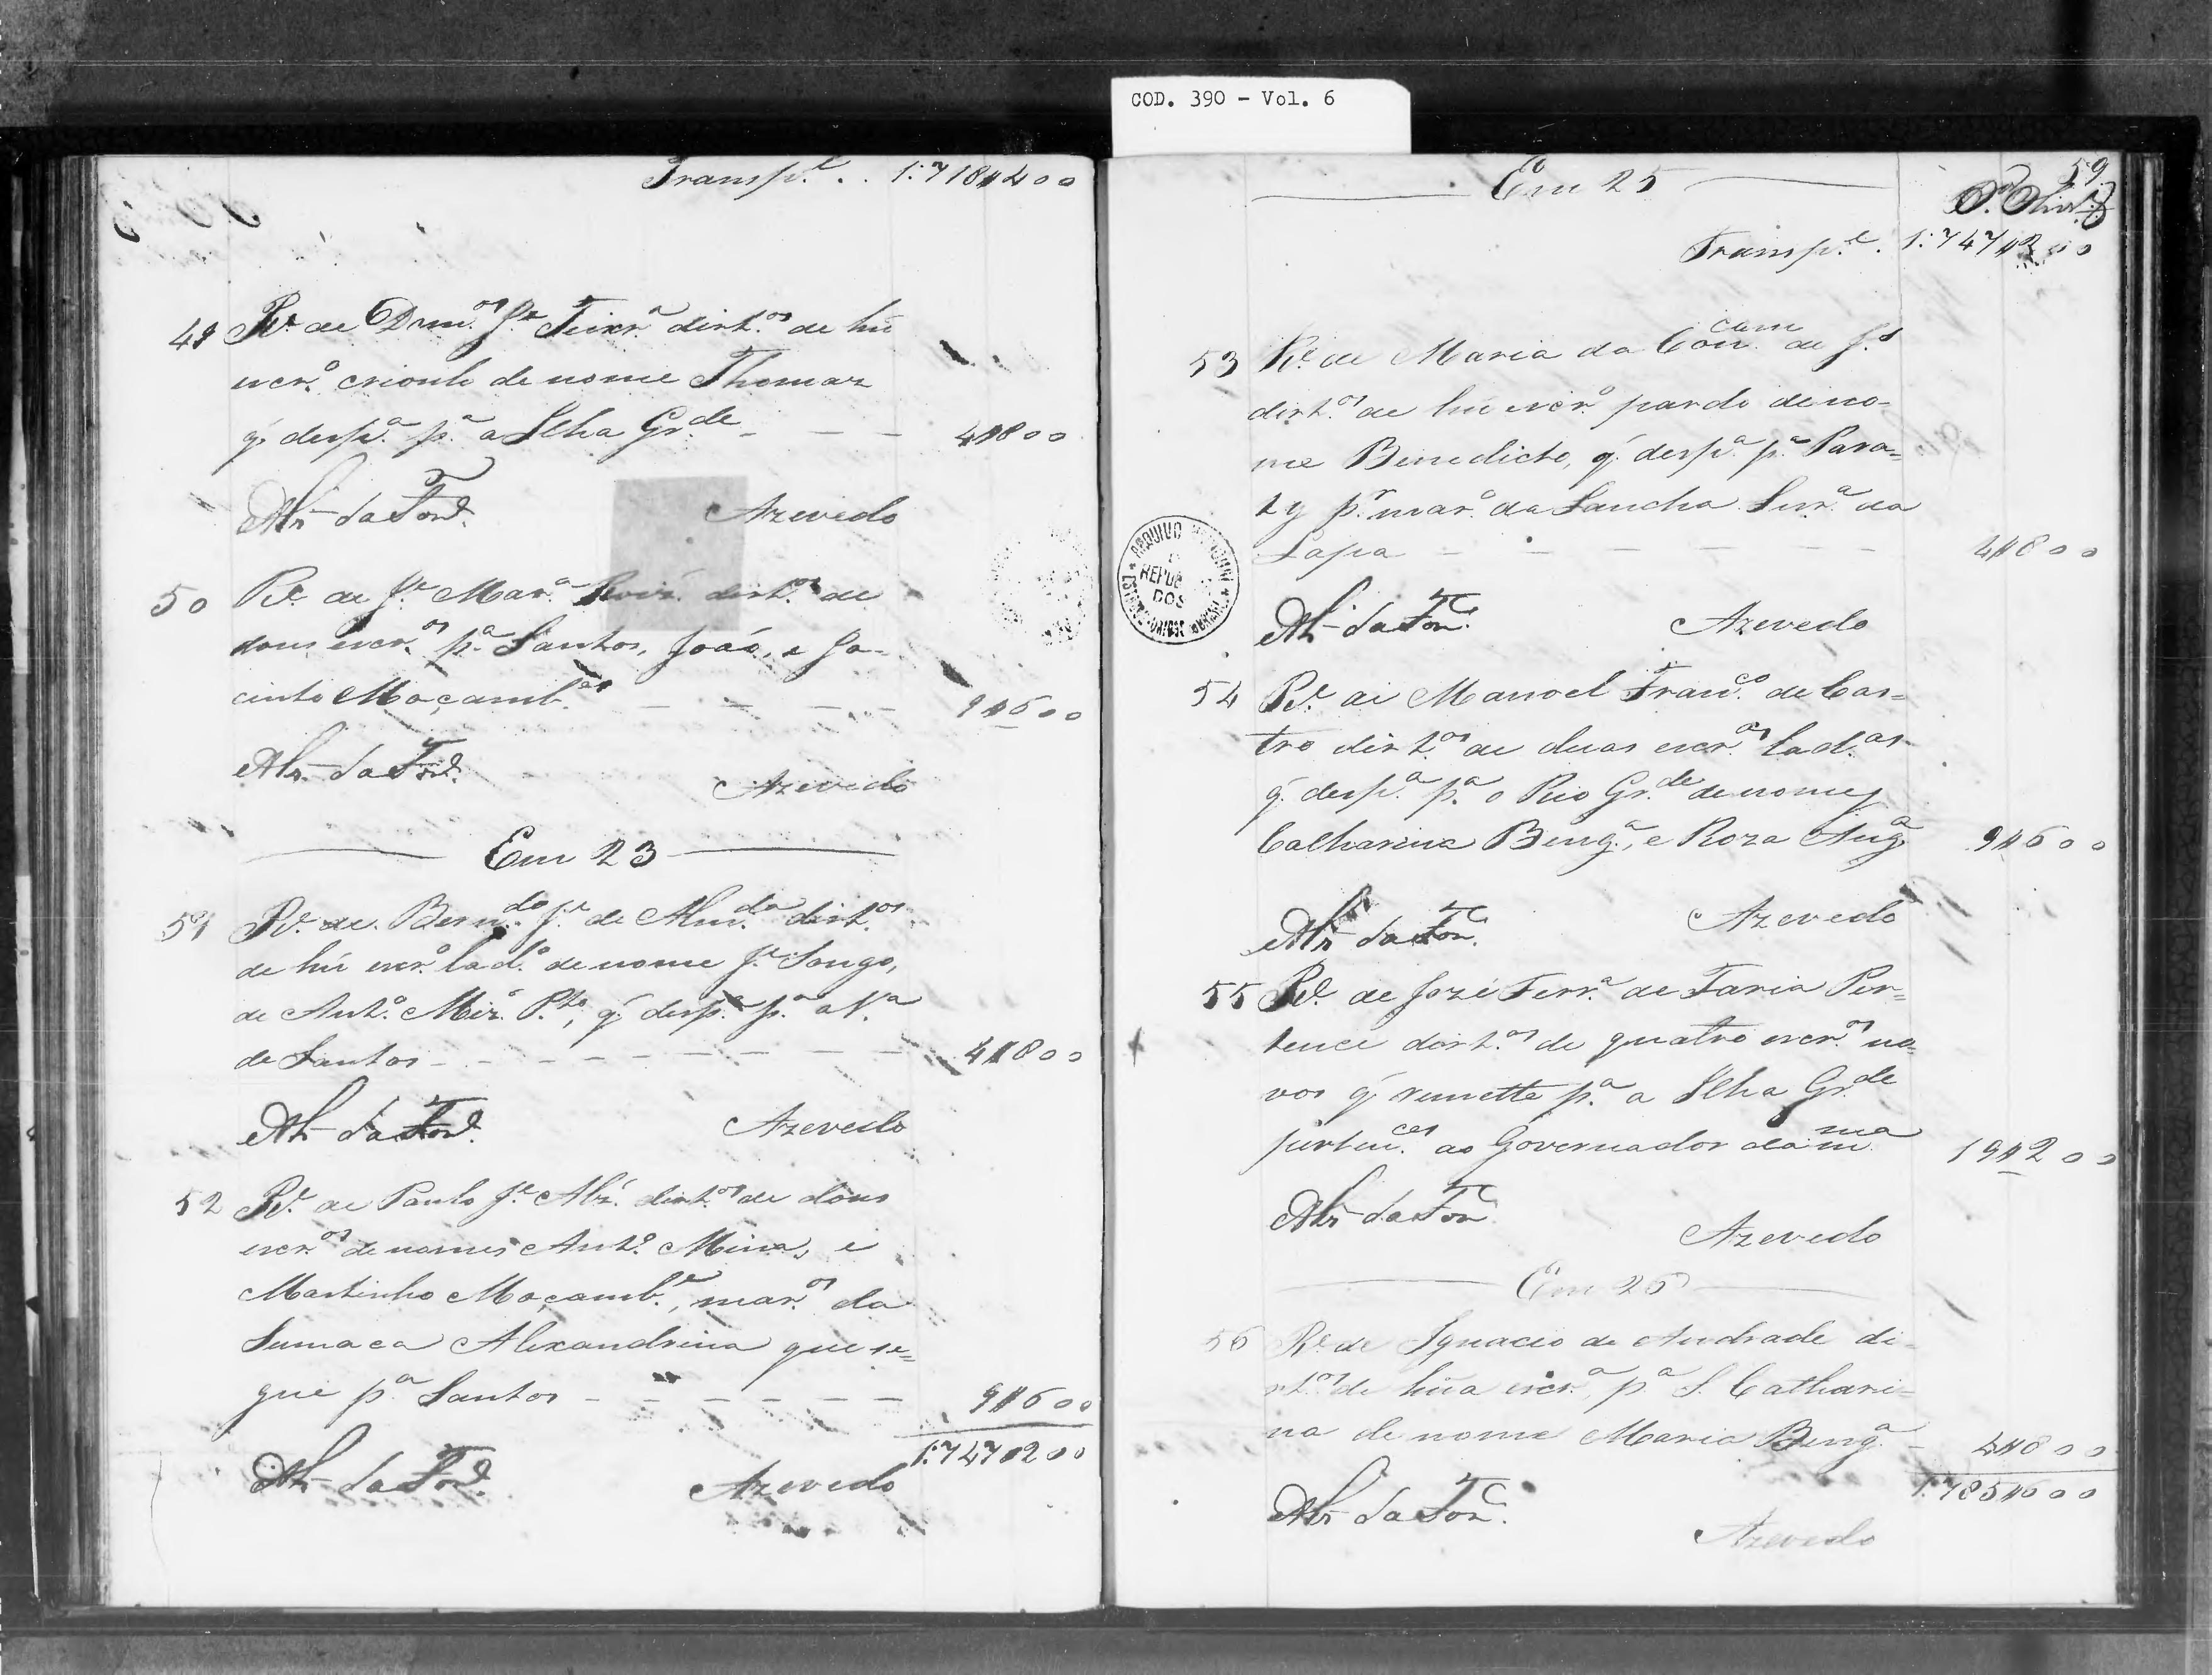 COD. 390 - Vol. 6
Transp.e . . 1:718$400
49 Re. de Dom.os Je. Teixr.a dirt.os de hũ
escr.o crioulo de nome Thomaz
q' desp.a p.a a Ilha Gr.de - - - 4$800
Alz da Fon.ca Azevedo
50 Re. de Je. Mar.a dirt.os de
dous escr.os p.a Santos, João, e Ja-
cinto Moçamb.es - - - - 9$600
Alz da Fon.ca Azevedo
Em 23
51 Re. de Bern.do Je. de Alm.da dirt.os
de hũ escr.o lad.o de nome Je. Songo,
de Ant.o Mir.a P.to, q' desp.a p.a a V.a
de Santos - - - - - - - - 4$800
Alz da Fon.ca Azevedo
52 Re. de Paulo Je. Alz' dirt.os de dous
escr.os de nomes Ant.o Mina, e
Martinho Moçamb.e, mar.os da
Sumaca Alexandrina que se=
gue p.a Santos - - - - - - 9$600
1:747$200
Alz da Fon.ca Azevedo
59
Em 25
Transp.e . 1:747$200
53 Re. de Maria da Con.cam de J.s
dirt.os de hũ escr.o pardo de no-
me Benedicto, q' desp.a p.a Para=
ty p.r mar.o da Lancha Snr.a da
Lapa - - - - - - - 4$800
Alz da Fon.ca Azevedo
54 Re. de Manoel Fran.co de Cas=
tro dirt.os de duas escr.as lad.as
q' desp.a p.a o Rio Gr.de de nomes
Catharina Beng.a, e Roza Ang.a 9$600
Alz da Fon.ca Azevedo
55 Re. de Jozé Ferr.a de Faria Per=
tence dirt.os de quatro escr.os no=
vos q' remette p.a a Ilha Gr.de
perten.ces ao Governador da m.ma 19$200
Alz da Fon.ca Azevedo
Em 26
56 Re. de Ignacio de Andrade di-
rt.os de hũa escr.a p.a S. Cathari=
na de nome Maria Beng.a - 4$800
1:785$600
Alz da Fon.ca Azevedo